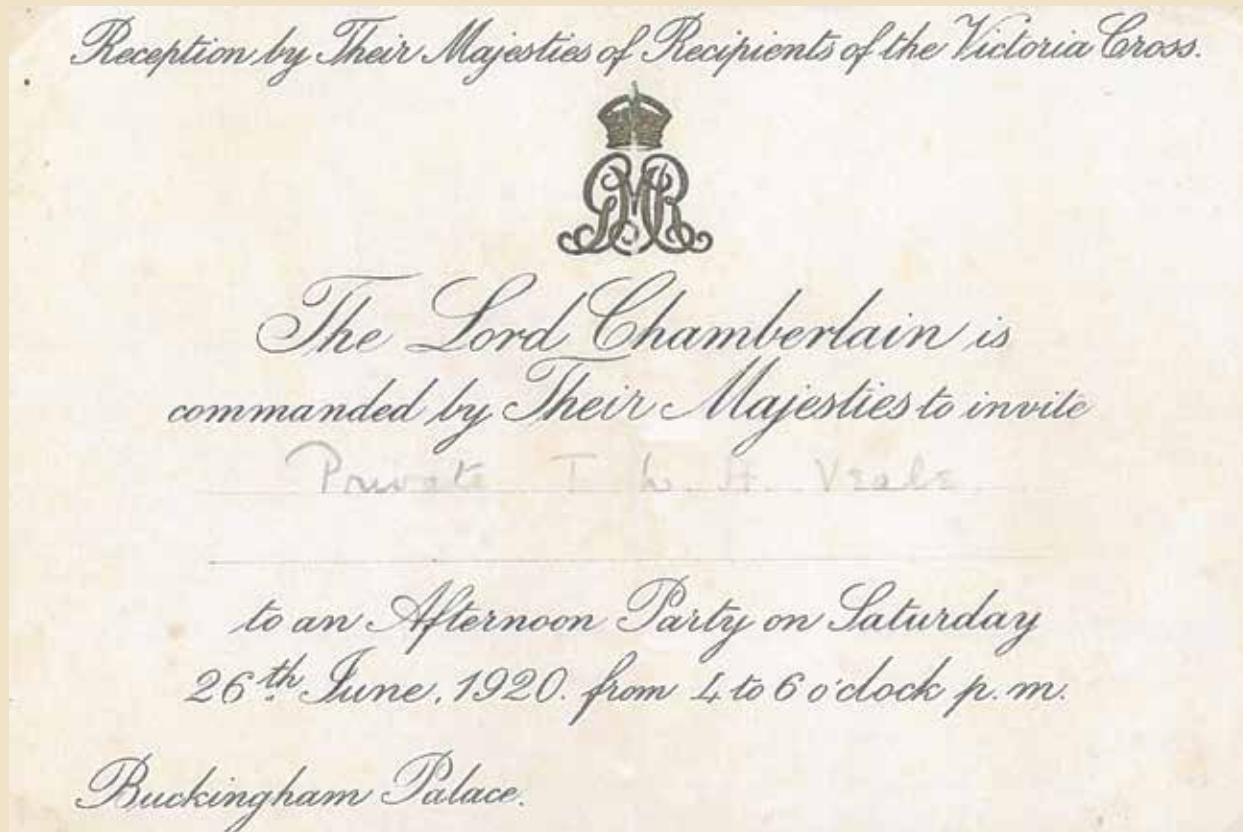 Reception by Their Majesties of Recipients of the Victoria Cross.
GMR
The Lord Chamberlain is
commanded by Their Majesties to invite
Private T. W. H. Veale
to an Afternoon Party on Saturday
26th June, 1920. from 4 to 6 o'clock p.m.
Buckingham Palace.